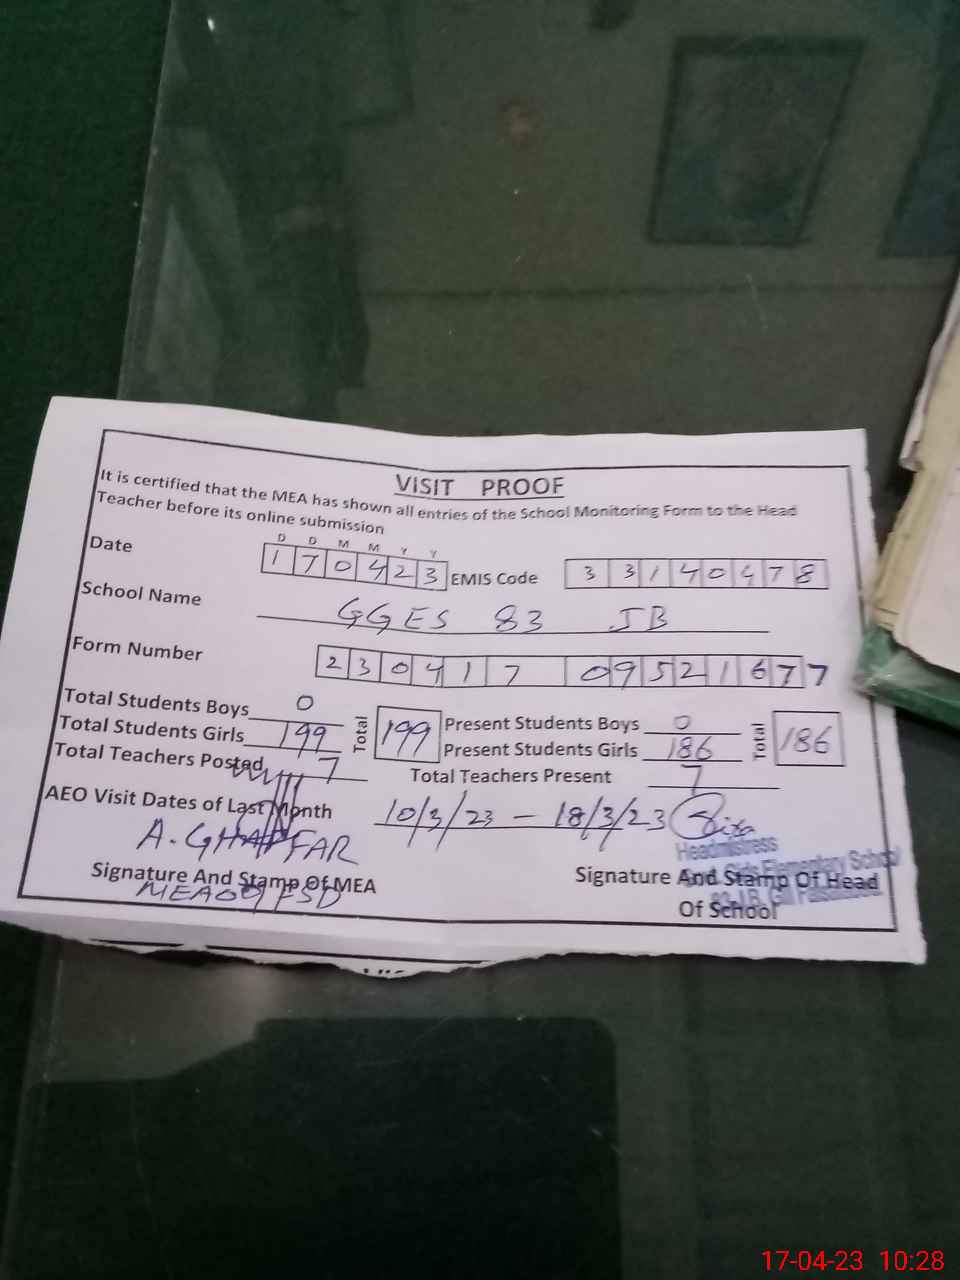 VISIT PROOF
It is certified that the MEA has shown all entries of the School Monitoring Form to the Head
Teacher before its online submission
D D M M Y Y
Date 1 7 0 4 2 3 EMIS Code 3 3 1 4 0 4 7 8
School Name GGES 83 JB
Form Number 2 3 0 4 1 7 0 9 5 2 1 6 7 7
Total Students Boys 0 Total 199 Present Students Boys 0 Total 186
Total Students Girls 199 Present Students Girls 186
Total Teachers Posted 7 Total Teachers Present 7
AEO Visit Dates of Last Month 10/3/23 - 18/3/23
A. GHAFFAR
Headmistress
Girls Elementary School
Signature And Stamp Of MEA Signature And Stamp Of Head
Of School
FSD
17-04-23 10:28